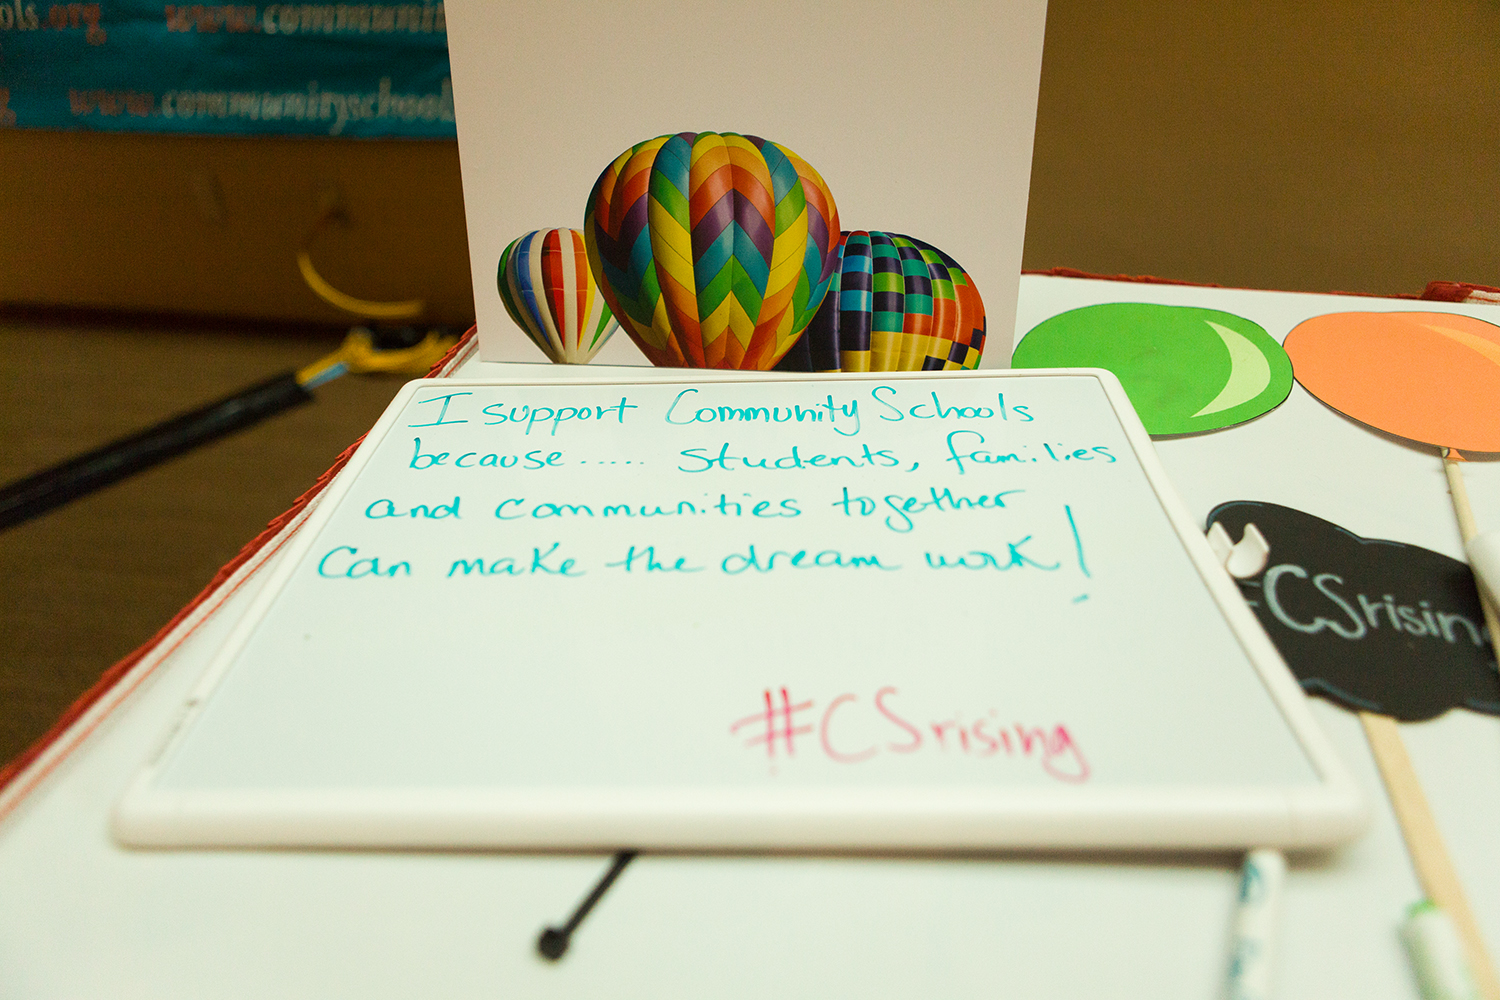 ols.org www.communit
www.communityschools
I support Community Schools
because..... students, families
and communities together
Can make the dream work!
#CSrising
#CSrising